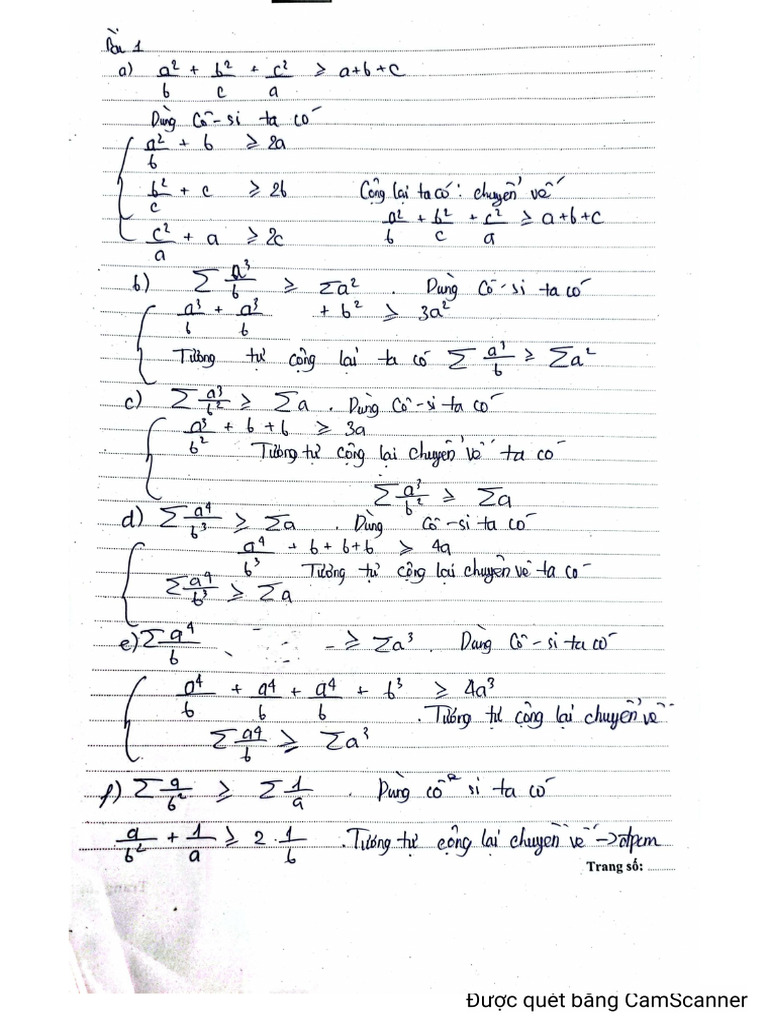 Bài 1
a) a²/b + b²/c + c²/a ≥ a+b+c
Dùng Cô-si ta có
a²/b + b ≥ 2a
b²/c + c ≥ 2b Cộng lại ta có: chuyển vế
c²/a + a ≥ 2c a²/b + b²/c + c²/a ≥ a+b+c
b) Σ a³/b ≥ Σa². Dùng Cô-si ta có
a³/b + a³/b + b² ≥ 3a²
Tương tự cộng lại ta có Σ a³/b ≥ Σa²
c) Σ a³/b² ≥ Σa. Dùng Cô-si ta có
a³/b² + b + b ≥ 3a
Tương tự cộng lại chuyển vế ta có
Σ a³/b² ≥ Σa
d) Σ a⁴/b³ ≥ Σa. Dùng Cô-si ta có
a⁴/b³ + b + b + b ≥ 4a
Tương tự cộng lại chuyển vế ta có
Σ a⁴/b³ ≥ Σa
e) Σ a⁴/b ≥ Σa³. Dùng Cô-si ta có
a⁴/b + a⁴/b + a⁴/b + b³ ≥ 4a³
. Tương tự cộng lại chuyển vế
Σ a⁴/b ≥ Σa³
f) Σ a/b² ≥ Σ 1/a. Dùng cô si ta có
a/b² + 1/a ≥ 2 . 1/b . Tương tự cộng lại chuyển vế → đpcm
Trang số: ..........
Được quét bằng CamScanner